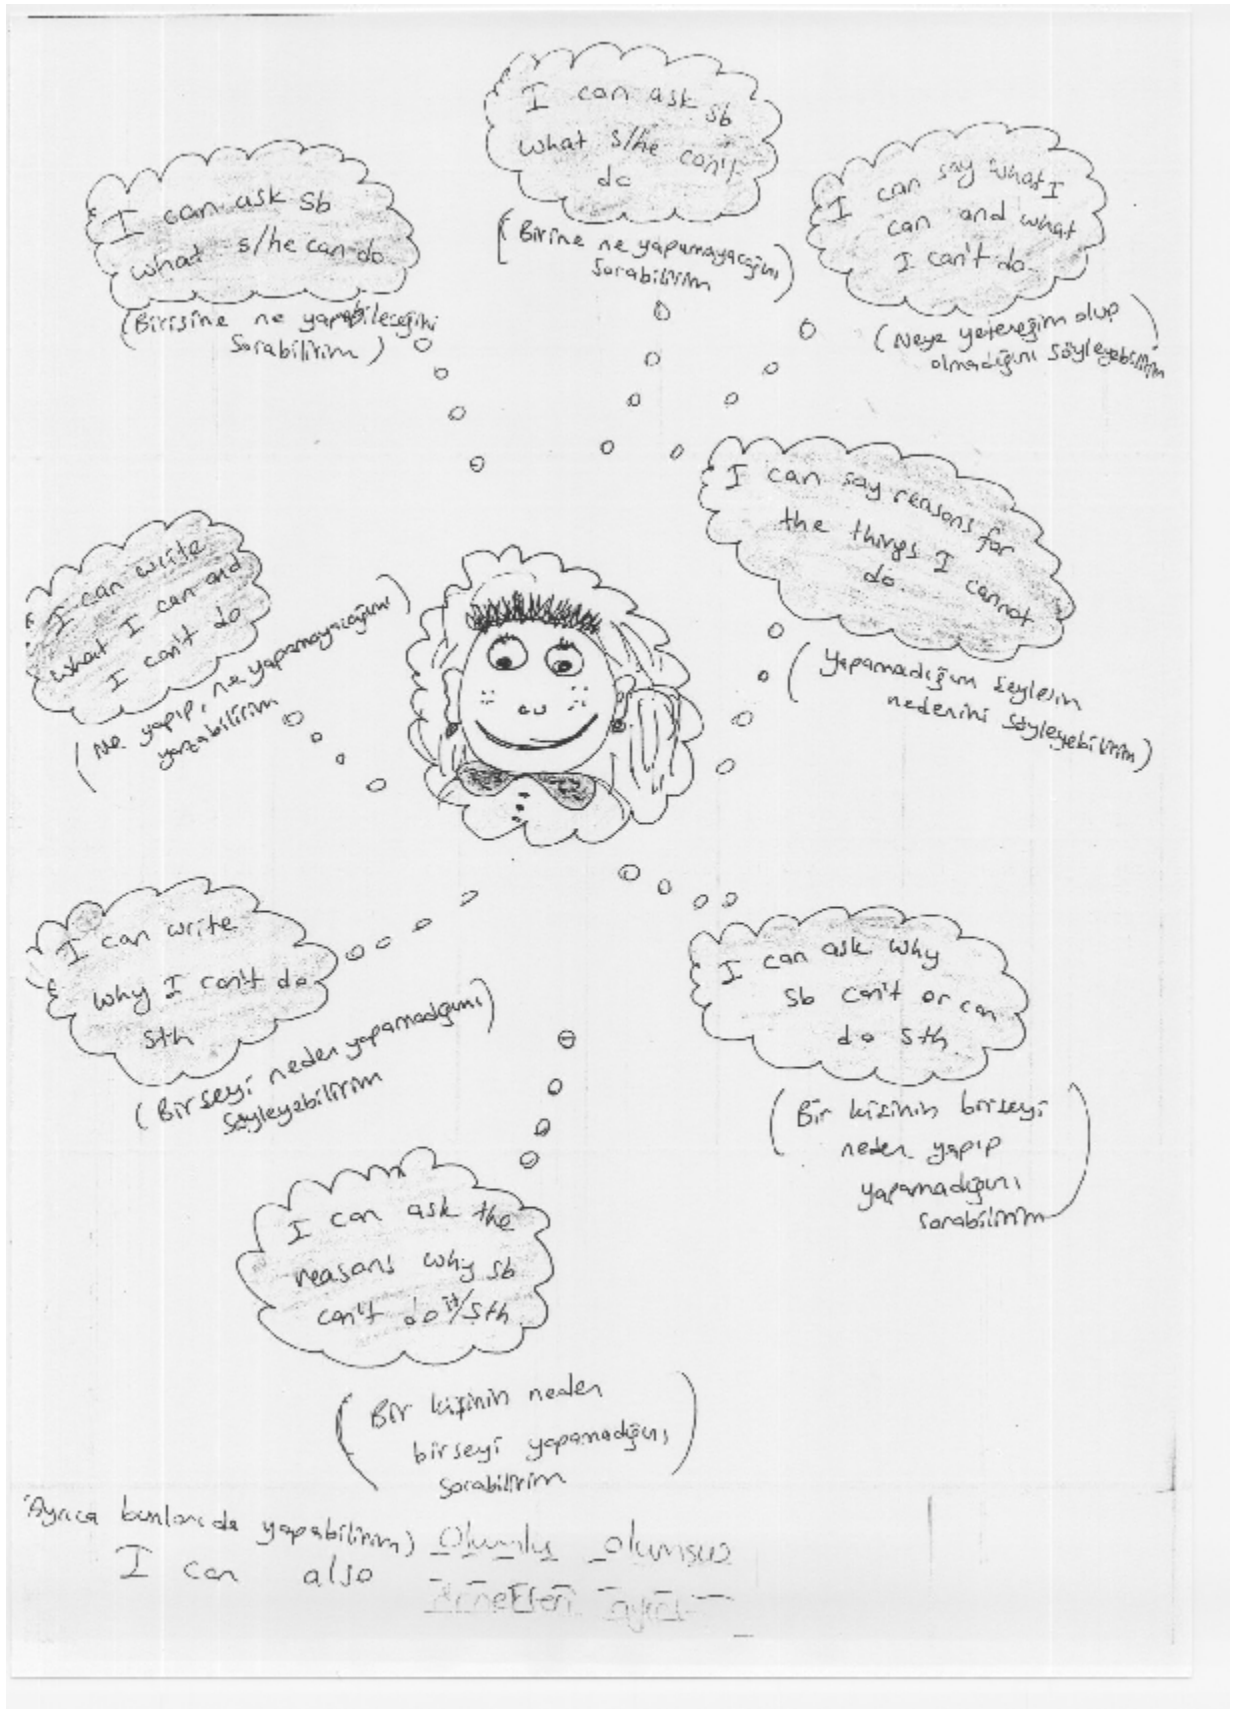 I can ask sb
what s/he can't
do
(Birine ne yapamayacağını
sorabilirim)
I can ask sb
what s/he can do
(Birisine ne yapabileceğini
sorabilirim)
I can say what I
can and what
I can't do.
(Neye yeteneğim olup
olmadığını söyleyebilirim)
I can say reasons for
the things I cannot
do.
(Yapamadığım şeylerin
nedenini söyleyebilirim)
I can write
what I can and
I can't do
(Ne yapıp, ne yapamayacağımı
yazabilirim
I can write
why I can't do
sth
(Bir şeyi neden yapamadığımı)
söyleyebilirim
I can ask why
sb can't or can
do sth
(Bir kişinin birşeyi
neden yapıp
yapamadığını
sorabilirim)
I can ask the
reasons why sb
can't do it/sth.
(Bir kişinin neden
birşeyi yapamadığını
sorabilirim)
(Ayrıca bunları da yapabilirim) Olumlu olumsuz
I can also